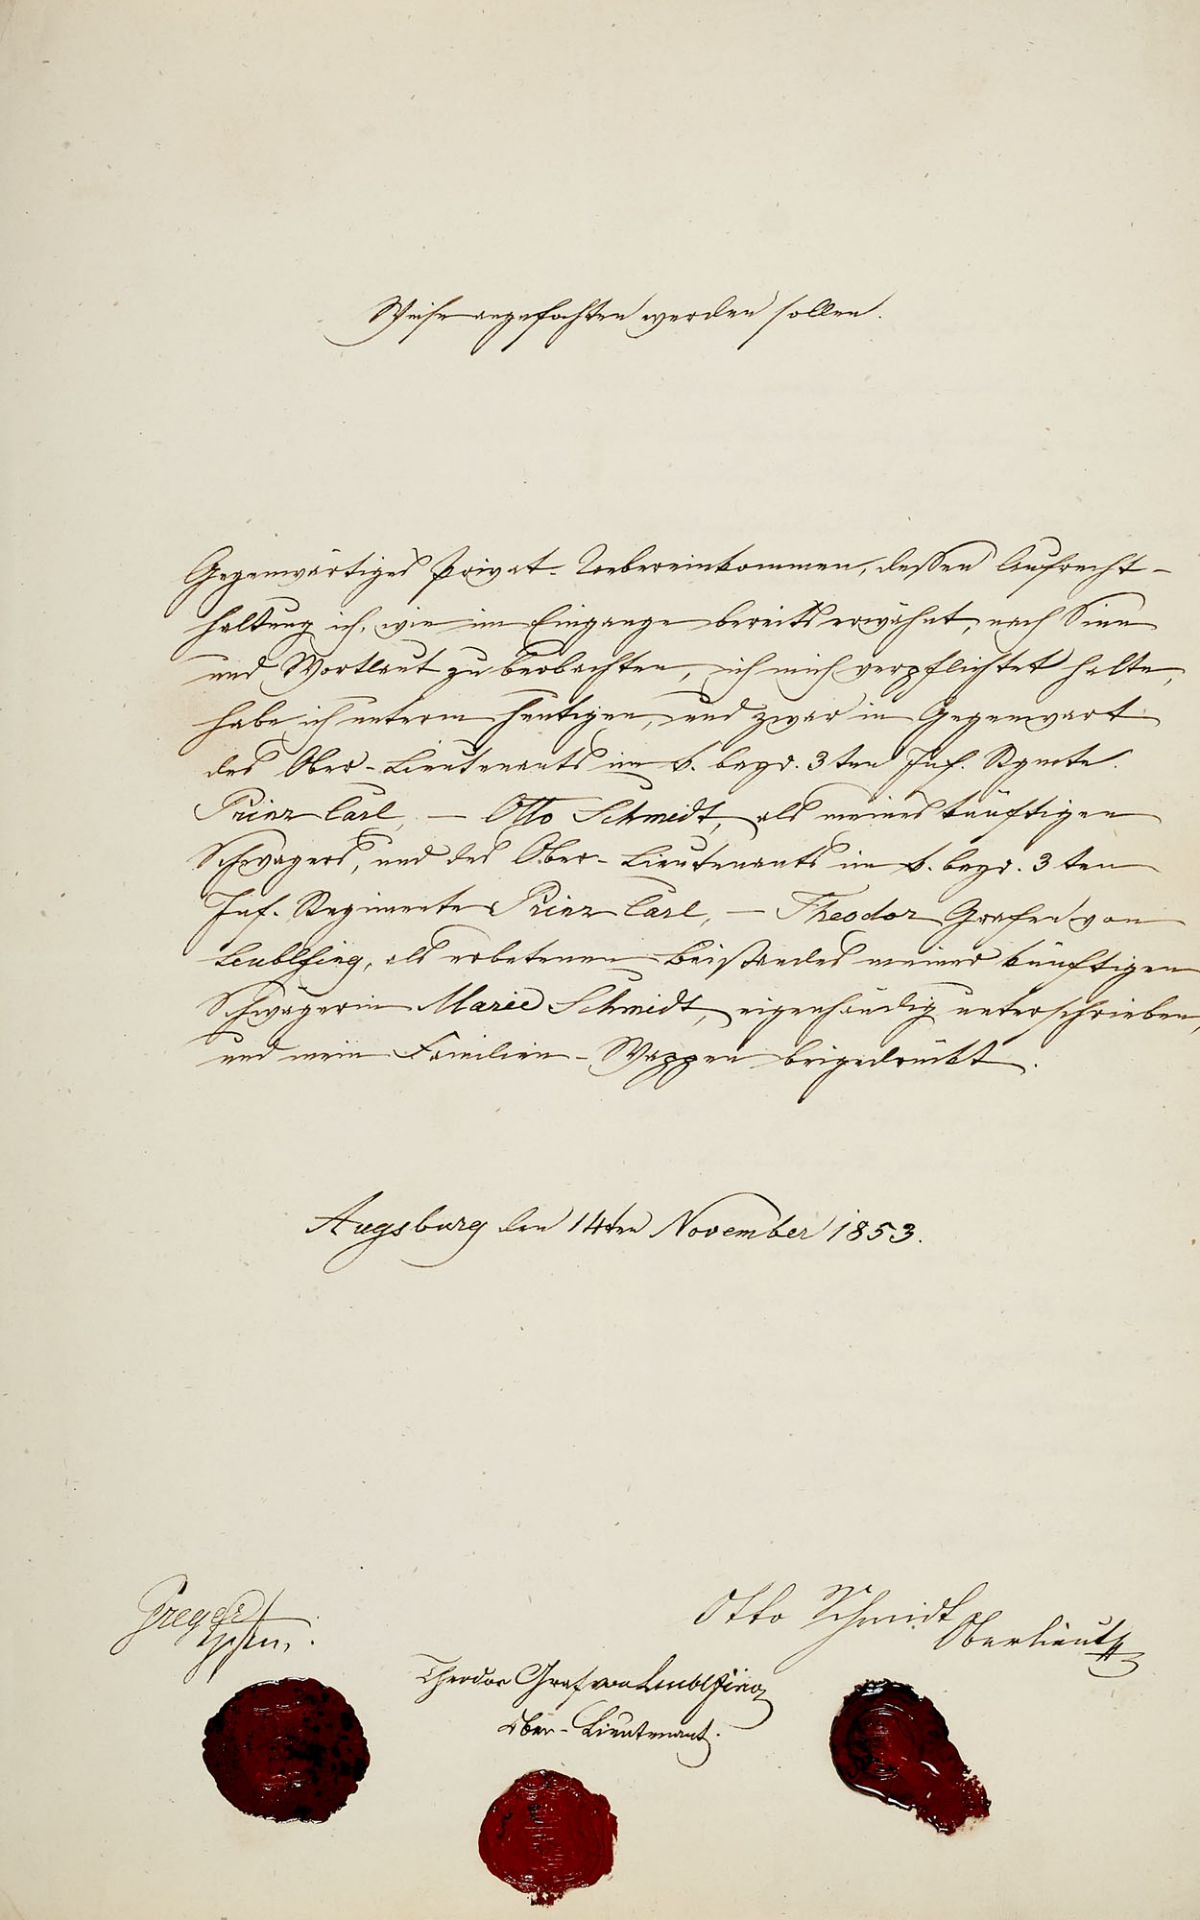 Weise angefochten werden sollen.
Gegenwärtiges Privat-Uebereinkommen, dessen Aufrecht-
haltung ich, wie im Eingange bereits erwähnt, nach Sinn
und Wortlaut zu beobachten, ich mich verpflichtet halte,
habe ich unterm Heutigen, und zwar in Gegenwart
des Ober-Lieutenants im k. bayr. 3ten Inf. Rgmte.
Prinz Carl, — Otto Schmidt, als meines künftigen
Schwagers, und des Ober-Lieutenants im k. bayr. 3ten
Inf. Regimente Prinz Carl, — Theodor Grafen von
Leublfing, als erbetenen Beistandes meiner künftigen
Schwägerin Marie Schmidt, eigenhändig unterschrieben,
und mein Familien-Wappen beigedrückt.
Augsburg den 14ten November 1853.
Otto Schmidt
Oberlieut
Theodor Graf von Leublfing
Ober-Lieutenant.